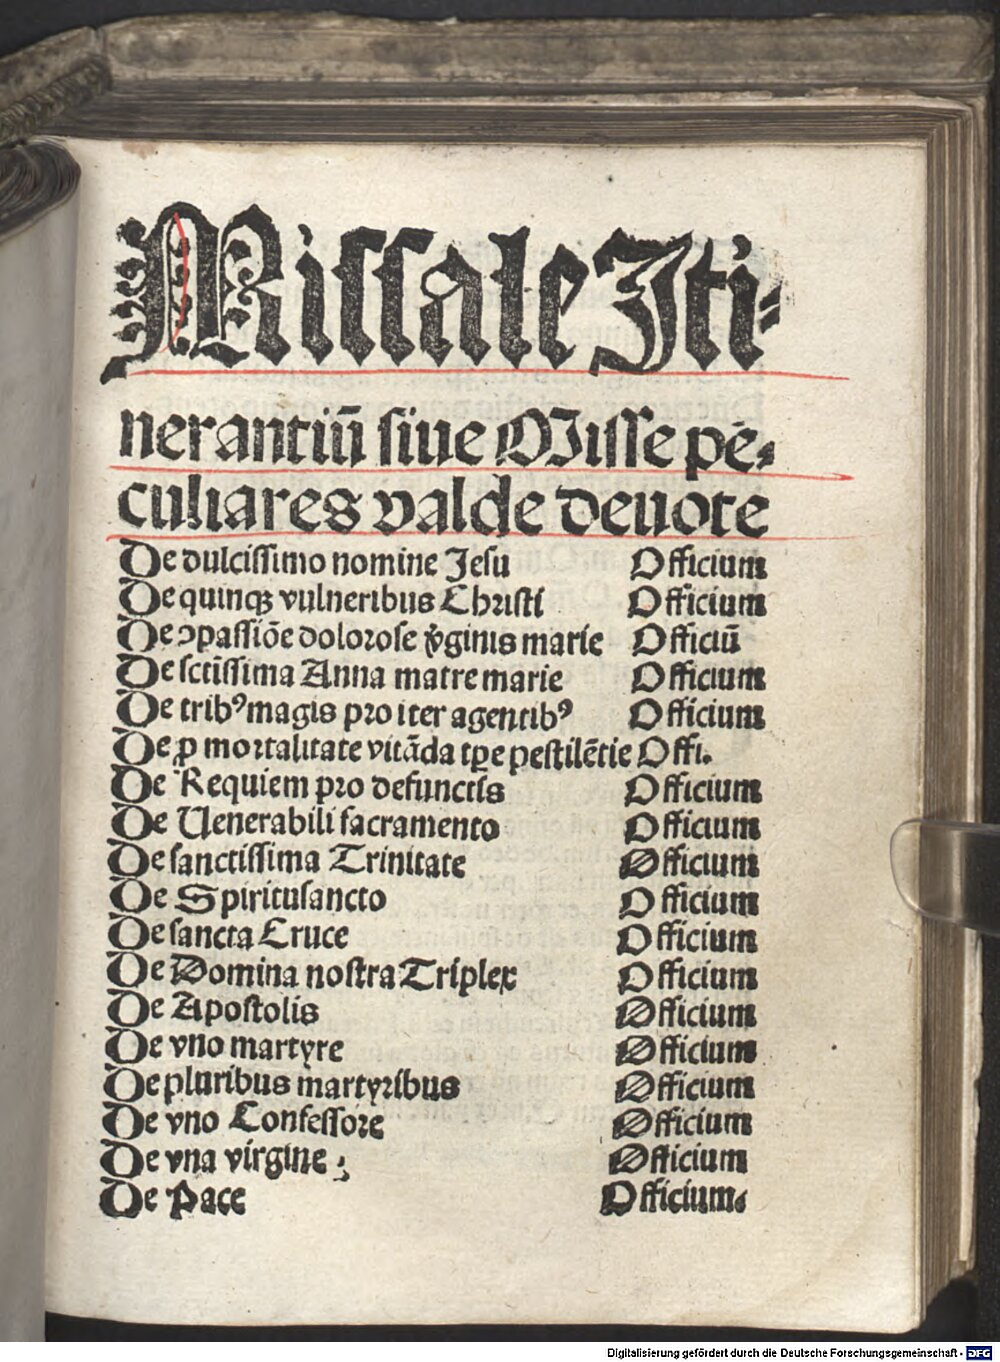 Missale Iti-
nerantiū siue Misse pe-
culiares valde deuote
De dulcissimo nomine Jesu Officium
De quinqꝫ vulneribus Christi Officium
De ↄpassiōe dolorose v̓ginis marie Officiū
De sctīssima Anna matre marie Officium
De tribꝰ magis pro iter agentibꝰ Officium
De ꝓ mortalitate vitāda tꝑe pestilētie Offi.
De Requiem pro defunctis Officium
De Uenerabili sacramento Officium
De sanctissima Trinitate Officium
De Spiritusancto Officium
De sancta Cruce Officium
De Domina nostra Triplex Officium
De Apostolis Officium
De vno martyre Officium
De pluribus martyribus Officium
De vno Confessore Officium
De vna virgine Officium
De Pace Officium.
Digitalisierung gefördert durch die Deutsche Forschungsgemeinschaft - DFG